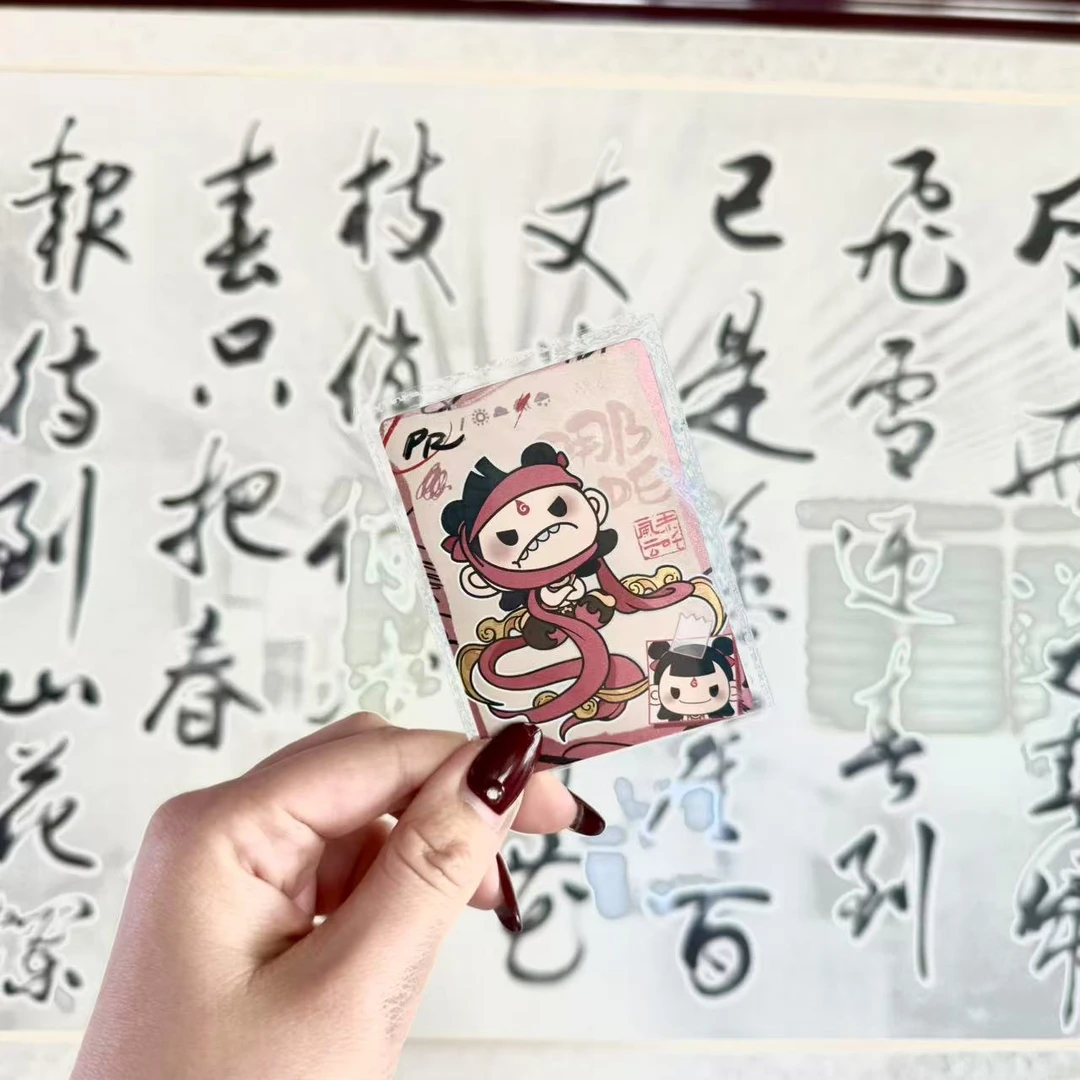 風雨送春歸
飛雪迎春到
已是懸崖百
丈
花
枝俏俏
春只把春
報待到山花爛
PR
哪
DE